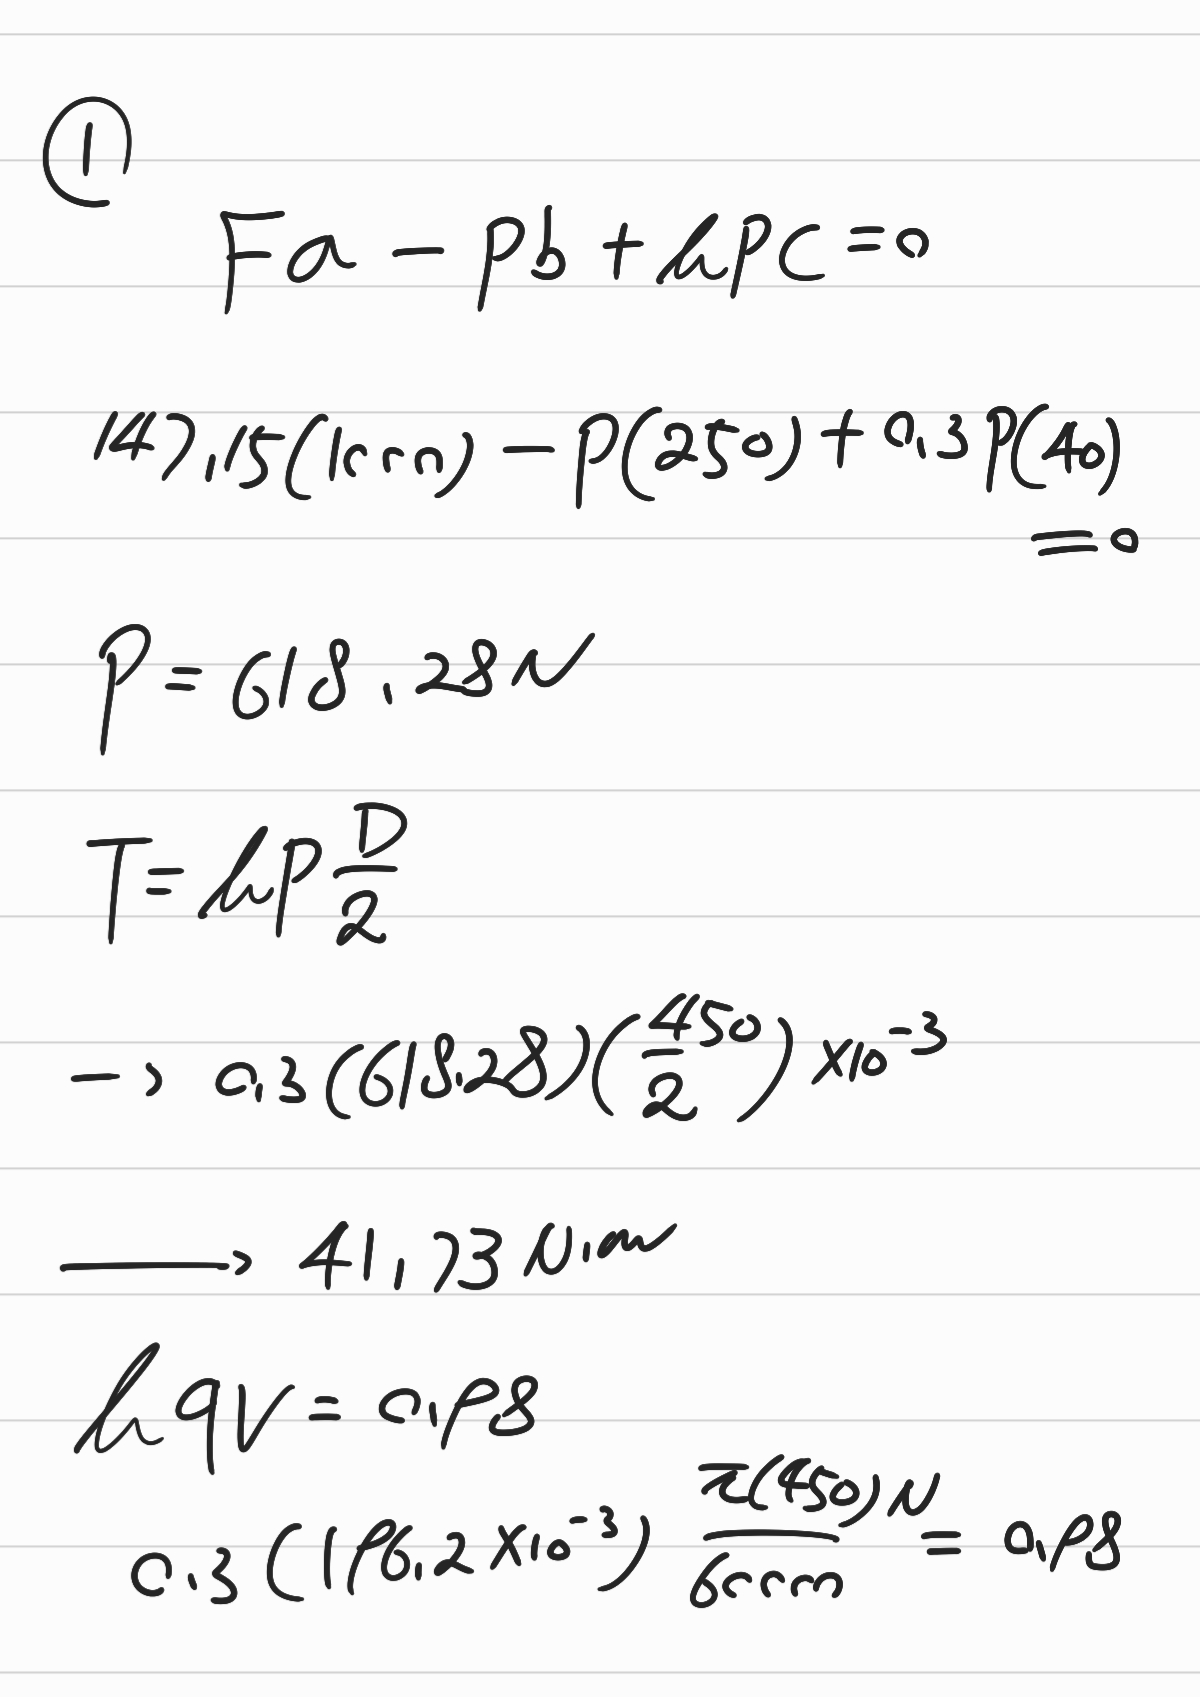 ①
Fa - Pb + μPc = 0
147.15(1000) - P(250) + 0.3P(40)
= 0
P = 618.28N
T = μP D/2
→ 0.3(618.28)(450/2)×10⁻³
→ 41.73 N.m
μqV = 0.98
0.3(196.2×10⁻³) π(450)N/60000 = 0.98